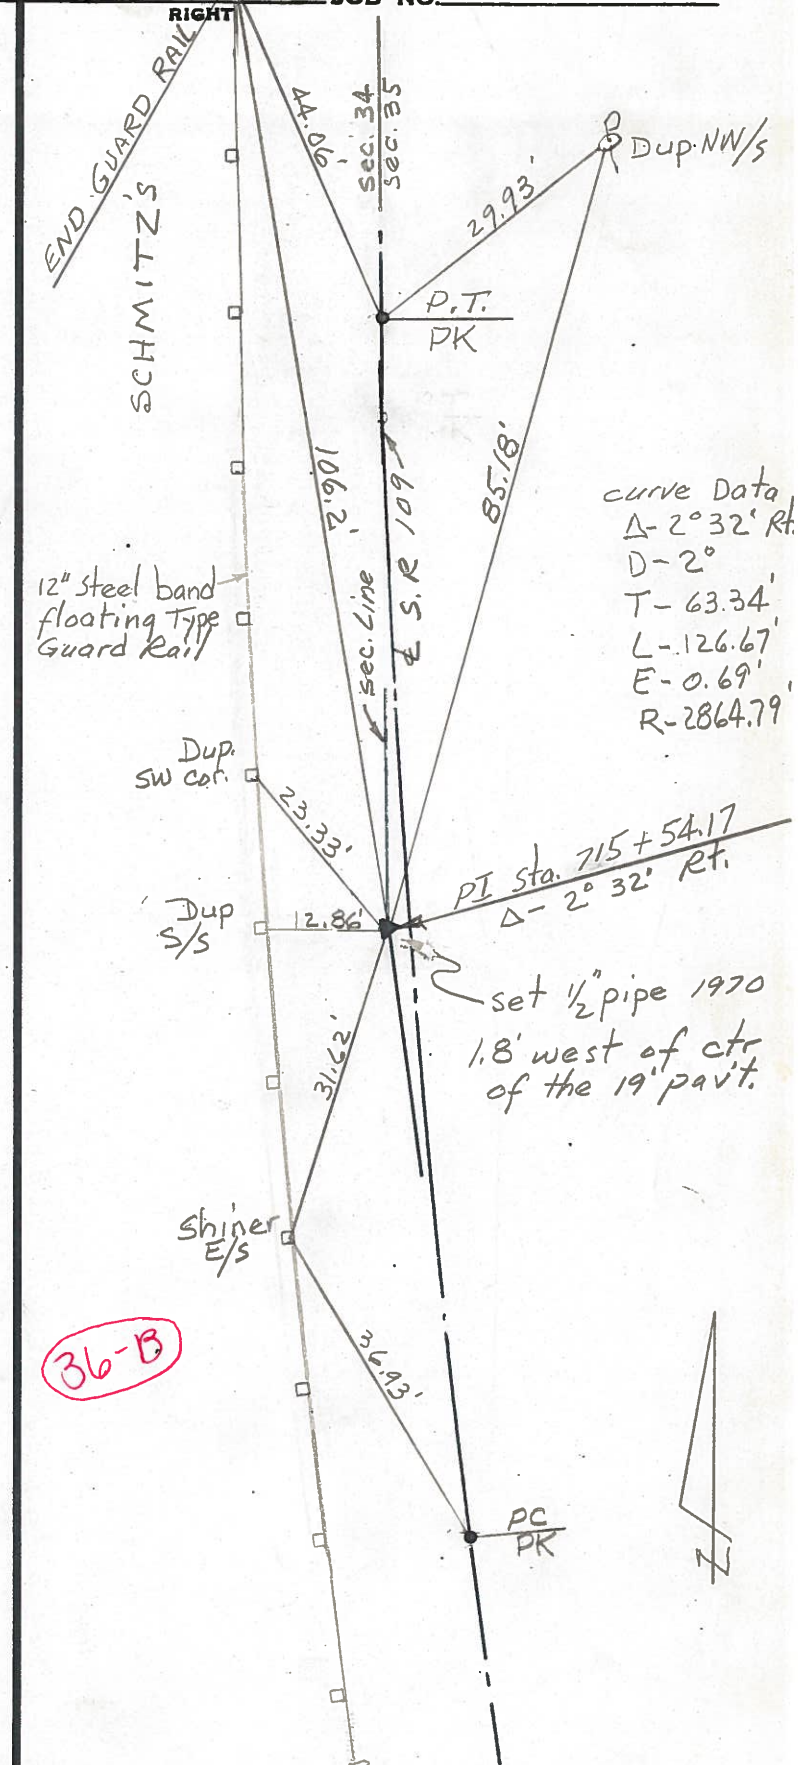 RIGHT
JOB NO.
END GUARD RAIL
SCHMITZ'S
44.06'
Sec. 34
Sec. 35
29.93'
Dup. NW/s
P.T.
PK
106.2'
85.18'
℄ S.R 109
Sec. Line
curve Data
Δ- 2° 32' Rt.
D- 2°
T- 63.34'
L- 126.67'
E- 0.69'
R- 2864.79'
12" Steel band
floating Type
Guard Rail
Dup.
SW cor.
23.33'
PI Sta. 715 + 54.17
Δ- 2° 32' Rt.
Dup
S/s
12.86'
set 1/2" pipe 1970
1.8' west of ctr
of the 19' pav't.
31.62'
Shiner
E/s
36-B
36.93'
PC
PK
N